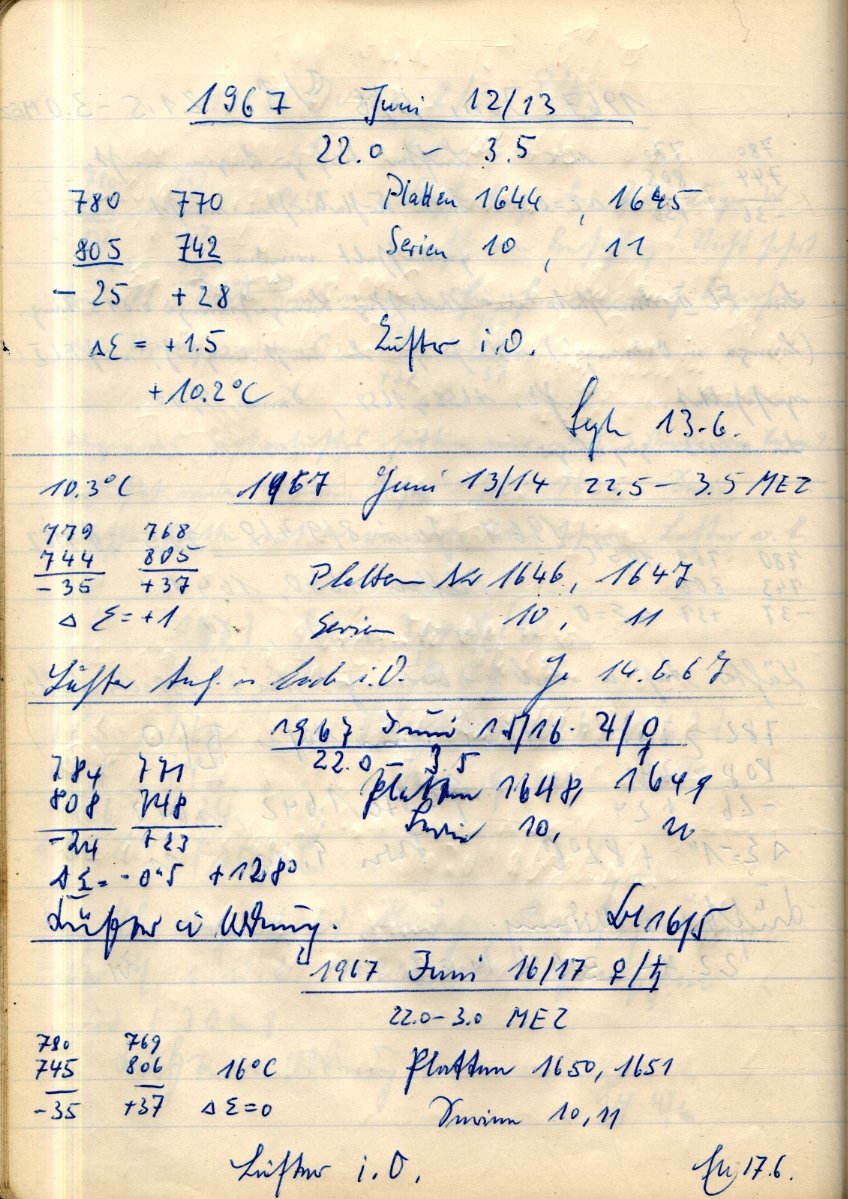 1967 Juni 12/13
22.0 – 3.5
780 770 Platten 1644, 1645
805 742 Serien 10, 11
– 25 + 28
ΔΣ = +1.5 Lüfter i.O.
+10.2°C
13.6.
10.3°C 1967 Juni 13/14 22.5 – 3.5 MEZ
779 768
744 805
-35 +37 Platten Nr 1646, 1647
Δ Σ = +1 Serien 10, 11
Lüfter Anf. u Ende i.O. 14.6.67
1967 Juni 15/16. ♃/♀
22.0 – 3.5
784 771 Platten 1648, 1649
808 748 Serien 10,
-24 +23
ΔΣ = -0.5 +12.8°
Lüfter in Ordnung. 16/5
1967 Juni 16/17 ♀/♄
22.0–3.0 MEZ
780 769
745 806 16°C Platten 1650, 1651
-35 +37 ΔΣ=0 Serien 10, 11
Lüfter i.O. 17.6.